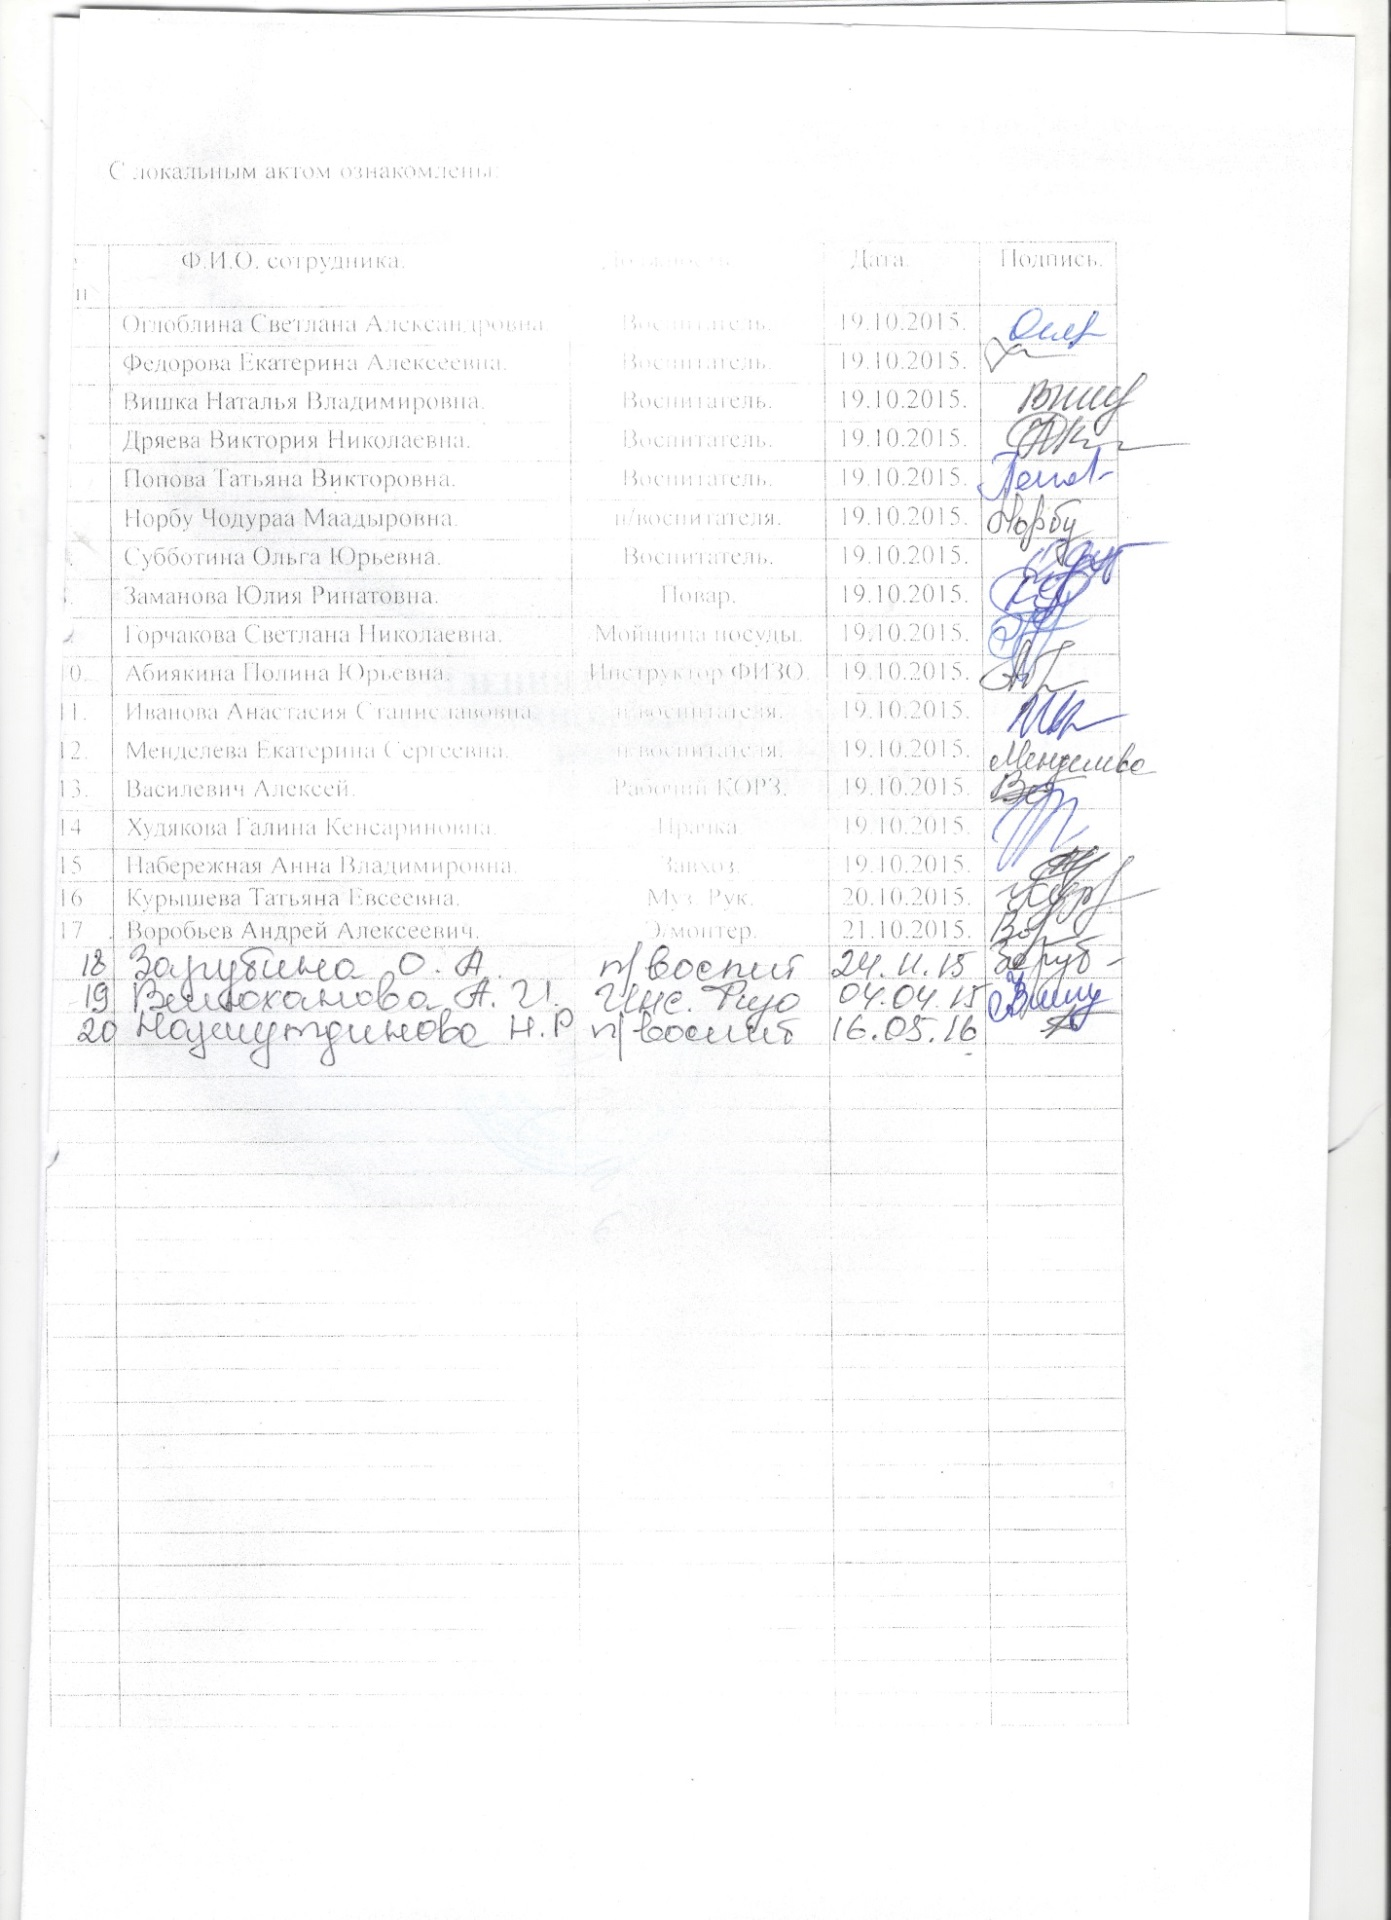 С локальным актом ознакомлены:
Ф.И.О. сотрудника. Должность. Дата. Подпись.
п
Оглоблина Светлана Александровна. Воспитатель. 19.10.2015.
Федорова Екатерина Алексеевна. Воспитатель. 19.10.2015.
Вишка Наталья Владимировна. Воспитатель. 19.10.2015.
Дряева Виктория Николаевна. Воспитатель. 19.10.2015.
Попова Татьяна Викторовна. Воспитатель. 19.10.2015.
Норбу Чодураа Маадыровна. п/воспитателя. 19.10.2015. Норбу
Субботина Ольга Юрьевна. Воспитатель. 19.10.2015.
Заманова Юлия Ринатовна. Повар. 19.10.2015.
Горчакова Светлана Николаевна. Мойщица посуды. 19.10.2015.
10. Абиякина Полина Юрьевна. Инструктор ФИЗО. 19.10.2015.
11. Иванова Анастасия Станиславовна. п/воспитателя. 19.10.2015.
12. Менделева Екатерина Сергеевна. п/воспитателя. 19.10.2015. Менделева
13. Василевич Алексей. Рабочий КОРЗ. 19.10.2015.
14 Худякова Галина Кенсариновна. Прачка. 19.10.2015.
15 Набережная Анна Владимировна. Завхоз. 19.10.2015.
16 Курышева Татьяна Евсеевна. Муз. Рук. 20.10.2015.
17 . Воробьев Андрей Алексеевич. Э/монтер. 21.10.2015.
18 Зарубина О. А. п/воспит 24.11.15
19 А. И. Инс. Физо 04.04.15
20 Нажмутдинова Н.Р п/воспит 16.05.16